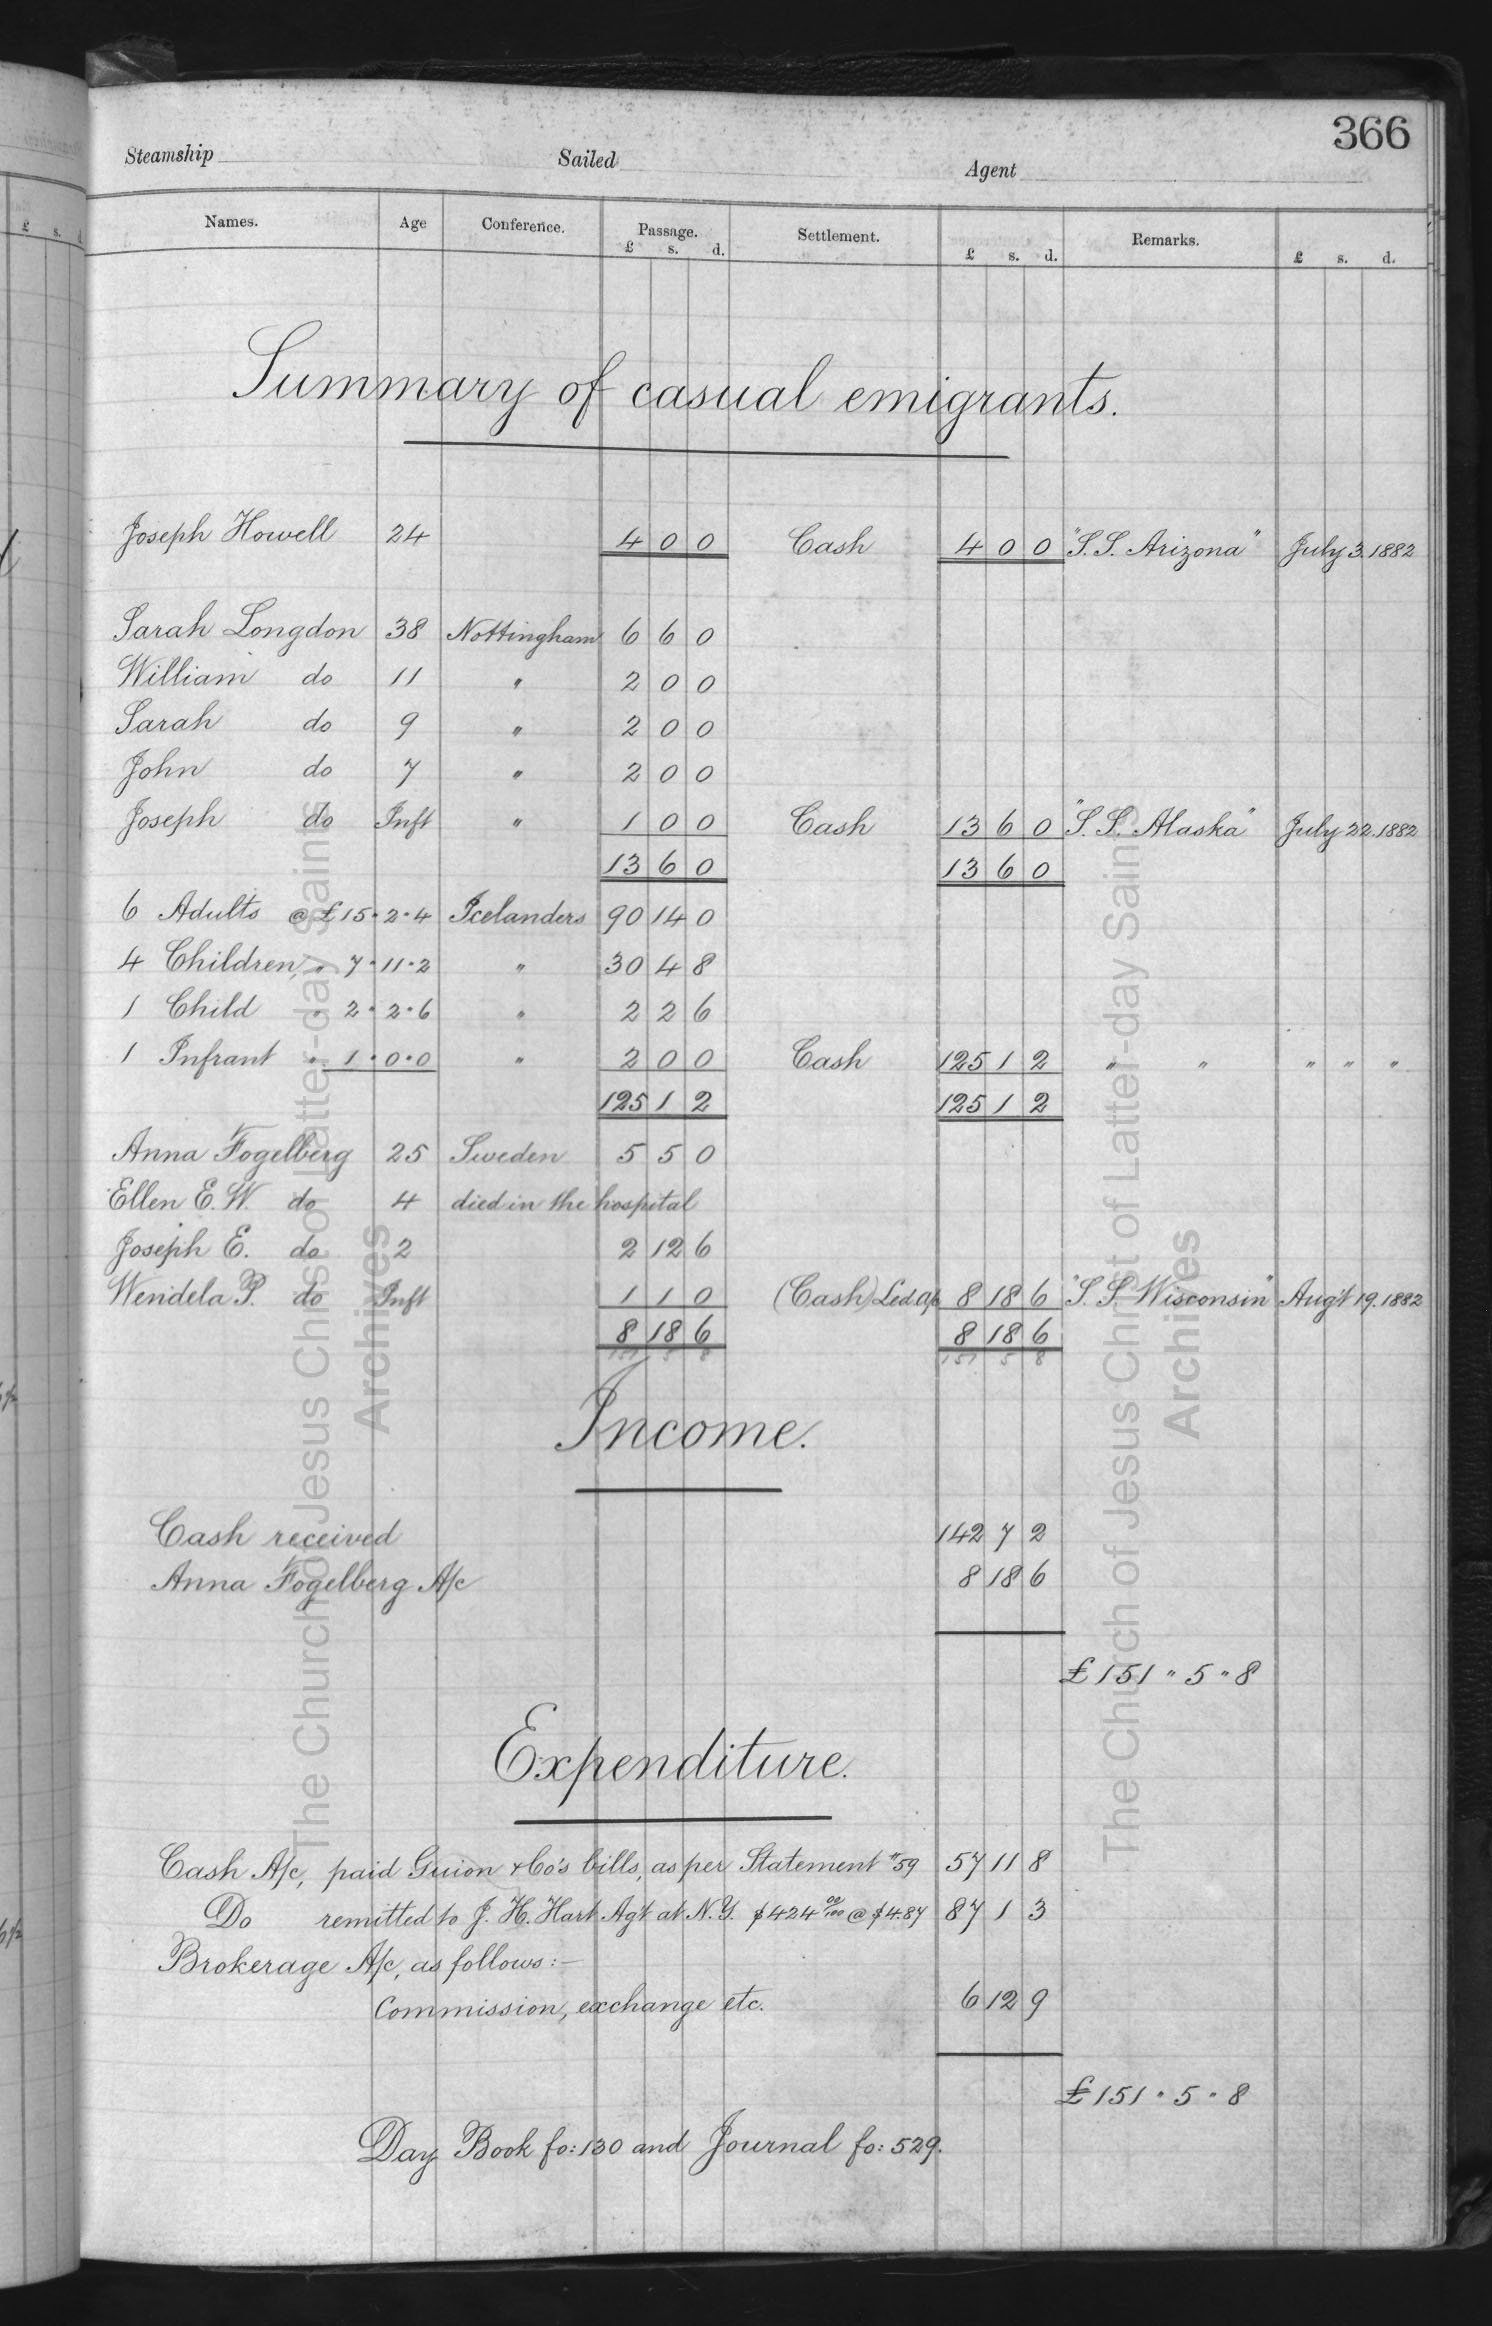 366
Steamship Sailed Agent
Names. Age Conference. Passage. Settlement. Remarks.
£ s. d. £ s. d. £ s. d.
Summary of casual emigrants.
Joseph Howell 24 4 0 0 Cash 4 0 0 "S.S. Arizona" July 3. 1882
Sarah Longdon 38 Nottingham 6 6 0
William do 11 " 2 0 0
Sarah do 9 " 2 0 0
John do 7 " 2 0 0
Joseph do Inft " 1 0 0 Cash 13 6 0 "S.S. Alaska" July 22. 1882
13 6 0 13 6 0
6 Adults @ £15.2.4 Icelanders 90 14 0
4 Children, " 7.11.2 " 30 4 8
1 Child " 2.2.6 " 2 2 6
1 Infrant " 1.0.0 " 2 0 0 Cash 125 1 2 " " " " "
125 1 2 125 1 2
Anna Fogelberg 25 Sweden 5 5 0
Ellen E. W. do 4 died in the hospital
Joseph E. do 2 2 12 6
Wendela P. do Inft 1 1 0 (Cash) Led. A/c 8 18 6 "S.S. Wisconsin" Aug't 19. 1882
8 18 6 8 18 6
151 5 8 151 5 8
Income.
Cash received 142 7 2
Anna Fogelberg A/c 8 18 6
£151 " 5 " 8
Expenditure.
Cash A/c, paid Guion & Co's bills, as per Statement "59 57 11 8
Do remitted to J. H. Hart Ag't at N.Y. $424 00/100 @ $4.87 87 1 3
Brokerage A/c, as follows:—
Commission, exchange etc. 6 12 9
£151 " 5 " 8
Day Book fo: 130 and Journal fo: 529.
The Church of Jesus Christ of Latter-day Saints
Archives
The Church of Jesus Christ of Latter-day Saints
Archives